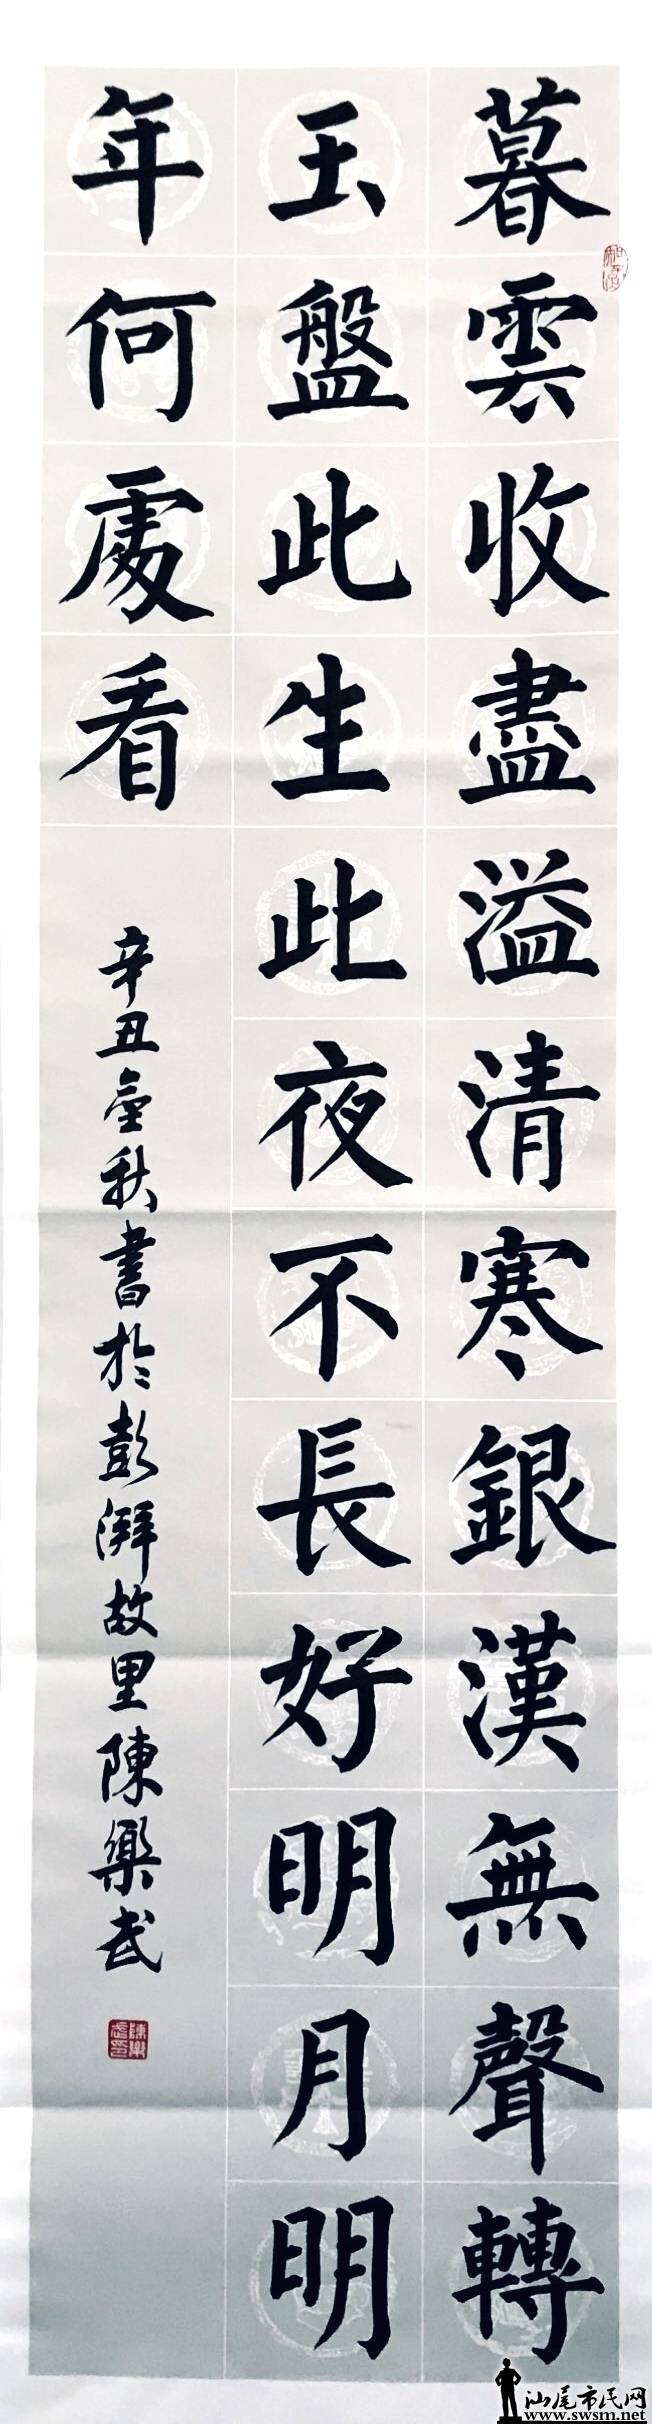 暮雲收盡溢清寒銀漢無聲轉
玉盤此生此夜不長好明月明
年何處看
辛丑金秋書於彭湃故里陳樂武
汕尾市民网
www.swsm.net